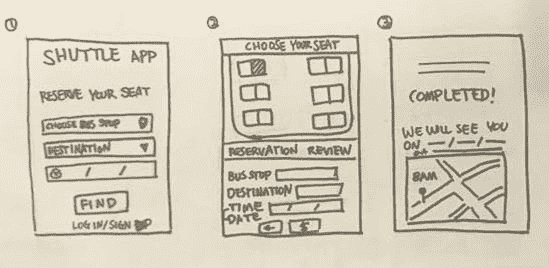 ①
SHUTTLE APP
RESERVE YOUR SEAT
CHOOSE BUS STOP
DESTINATION
/ /
FIND
LOG IN/SIGN UP
②
CHOOSE YOUR SEAT
RESERVATION REVIEW
BUS STOP
DESTINATION
TIME
DATE
/ /
←
③
COMPLETED!
WE WILL SEE YOU
ON _/_/_/_
8AM